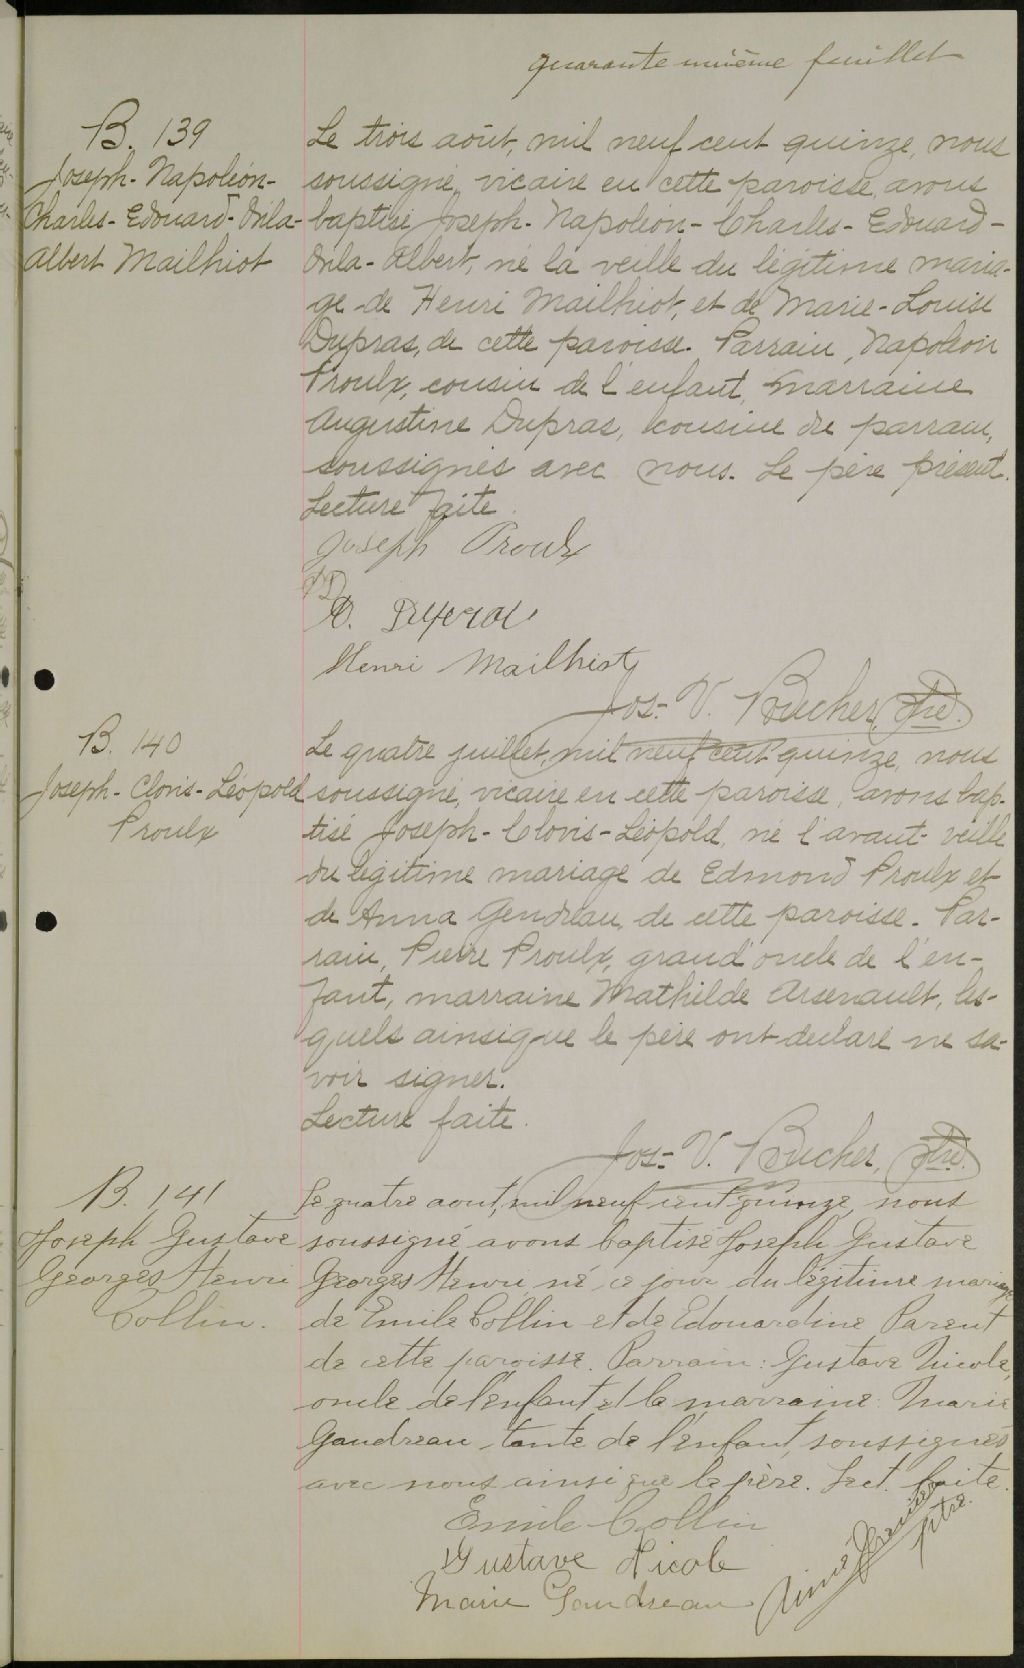 quarante unième feuillet
B. 139
Joseph-Napoléon-
Charles-Edouard-Orila-
Albert Mailhiot
Le trois août, mil neuf cent quinze, nous
soussigné, vicaire en cette paroisse avons
baptisé Joseph-Napoléon-Charles-Edouard-
Orila-Albert, né la veille du légitime maria-
ge de Henri Mailhiot, et de Marie-Louise
Dupras, de cette paroisse. Parrain, Napoléon
Proulx, cousin de l'enfant, marraine
Augustine Dupras, cousine du parrain,
soussignés avec nous. Le père présent.
Lecture faite.
Joseph Proulx
A.
Henri Mailhiot
Jos.-V. Boucher, ptre.
B. 140
Joseph-Clovis-Léopold
Proulx
Le quatre juillet, mil neuf cent quinze, nous
soussigné, vicaire en cette paroisse, avons bap-
tisé Joseph-Clovis-Léopold, né l'avant-veille
du légitime mariage de Edmond Proulx et
de Anna Gendreau, de cette paroisse. Par-
rain, Pierre Proulx, grand'oncle de l'en-
fant, marraine Mathilde Arsenault, les-
quels ainsi que le père ont déclaré ne sa-
voir signer.
Lecture faite.
Jos.-V. Boucher, ptre.
B. 141
Joseph Gustave
Georges Henri
Collin.
Le quatre aout, mil neuf cent quinze, nous
soussigné avons baptisé Joseph Gustave
Georges Henri, né ce jour du légitime mariage
de Emile Collin et de Edouardine Parent
de cette paroisse. Parrain: Gustave Nicole,
oncle de l'enfant et la marraine: Marie
Gaudreau, tante de l'enfant, soussignés
avec nous ainsi que le père. Lect. faite.
Emile Collin
Gustave Nicole
Marie Gaudreau
Aimé ptre.